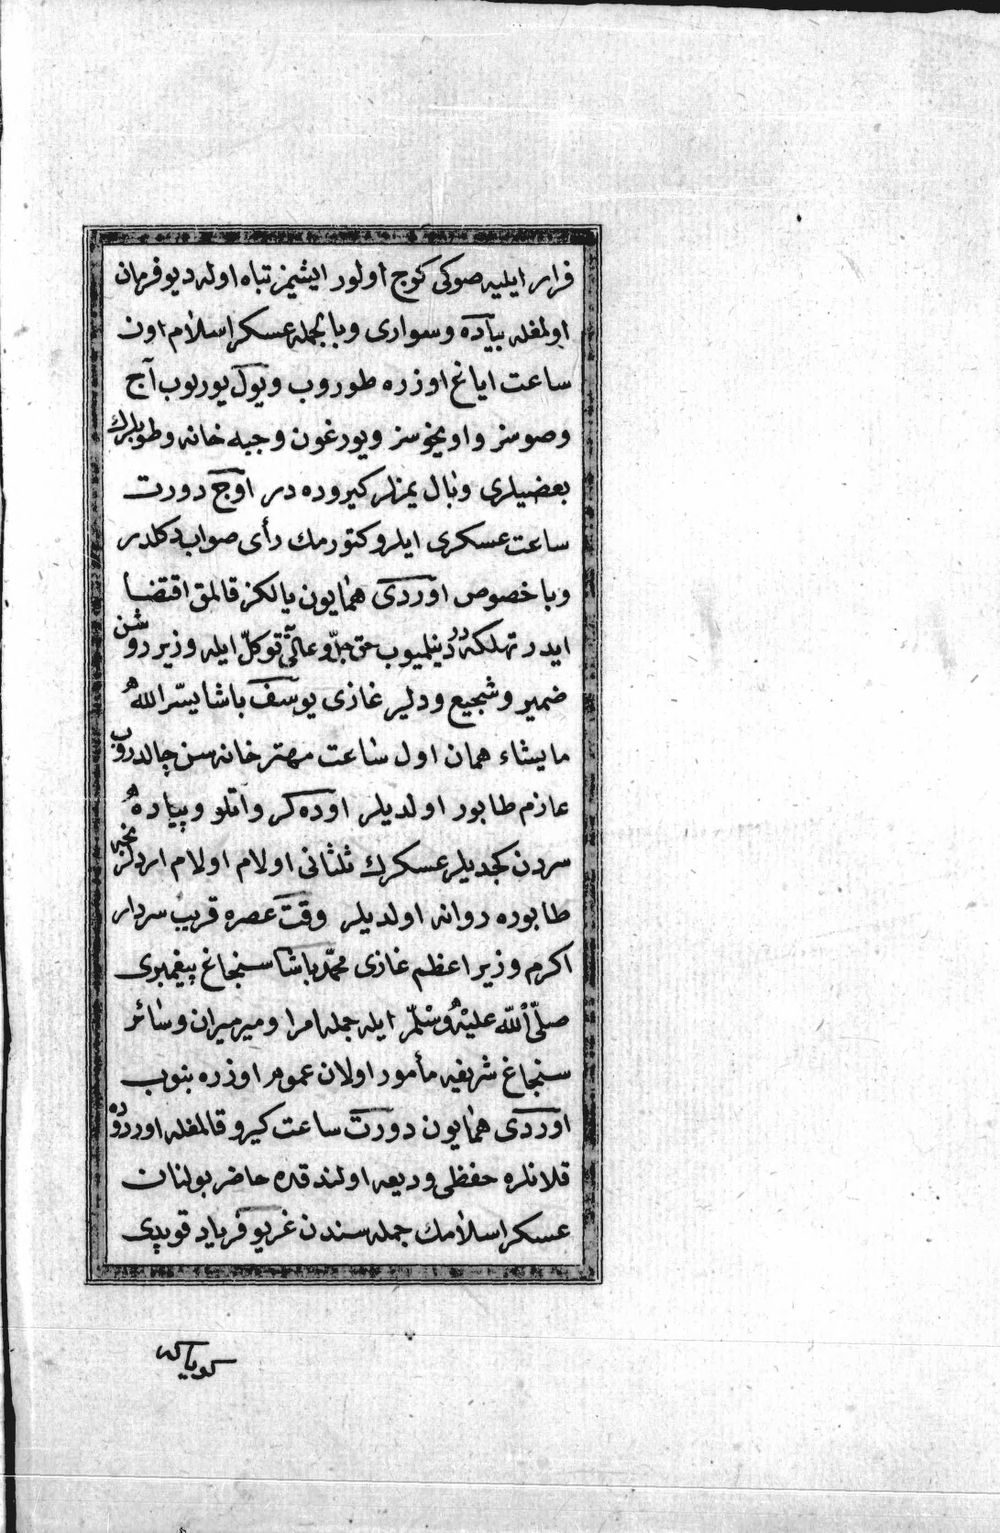 فرار ايليه صوكى كوج اولور ايشيمز تباه اوله ديو فرمان
اولمغله بياده وسوارى وبالجمله عسكر اسلام اون
ساعت اياغ اوزره طوروب ويول يوريوب آج
وصوسز واويخوسز ويورغون وجبه خانه وطوپلرك
بعضيلرى وبال يمزلر كيروده در اوج دورت
ساعت عسكرى ايلرو كتورمك رأى صواب دكلدر
وباخصوص اوردى همايون يالكز قالمق اقتضا
ايدر تهلكه در دينلميوب حق جلّ وعالى توكّل ايله وزير روشن
ضمير وشجيع ودلير غازى يوسف باشا يسّر الله
مايشاء همان اول ساعت مهتر خانه سن چالدروب
عازم طابور اولديلر اوده كر واتلو وپياده
سردن كجديلر عسكرك ثلثانى اولام اولام اردلرنجه
طابوره روانه اولديلر وقت عصره قريب سردار
اكرم وزير اعظم غازى محمّد باشا سنجاغ پيغمبرى
صلّى الله عليه وسلّم ايله جمله امرا ومير ميران وسائر
سنجاغ شريفه مأمور اولان عموم اوزره بنوب
اوردى همايون دورت ساعت كيرو قالمغله اوردوده
قلانلره حفظى وديعه اولندقده حاضر بولنان
عسكر اسلامك جمله سندن غريو فرياد قوپدى
كويا كه